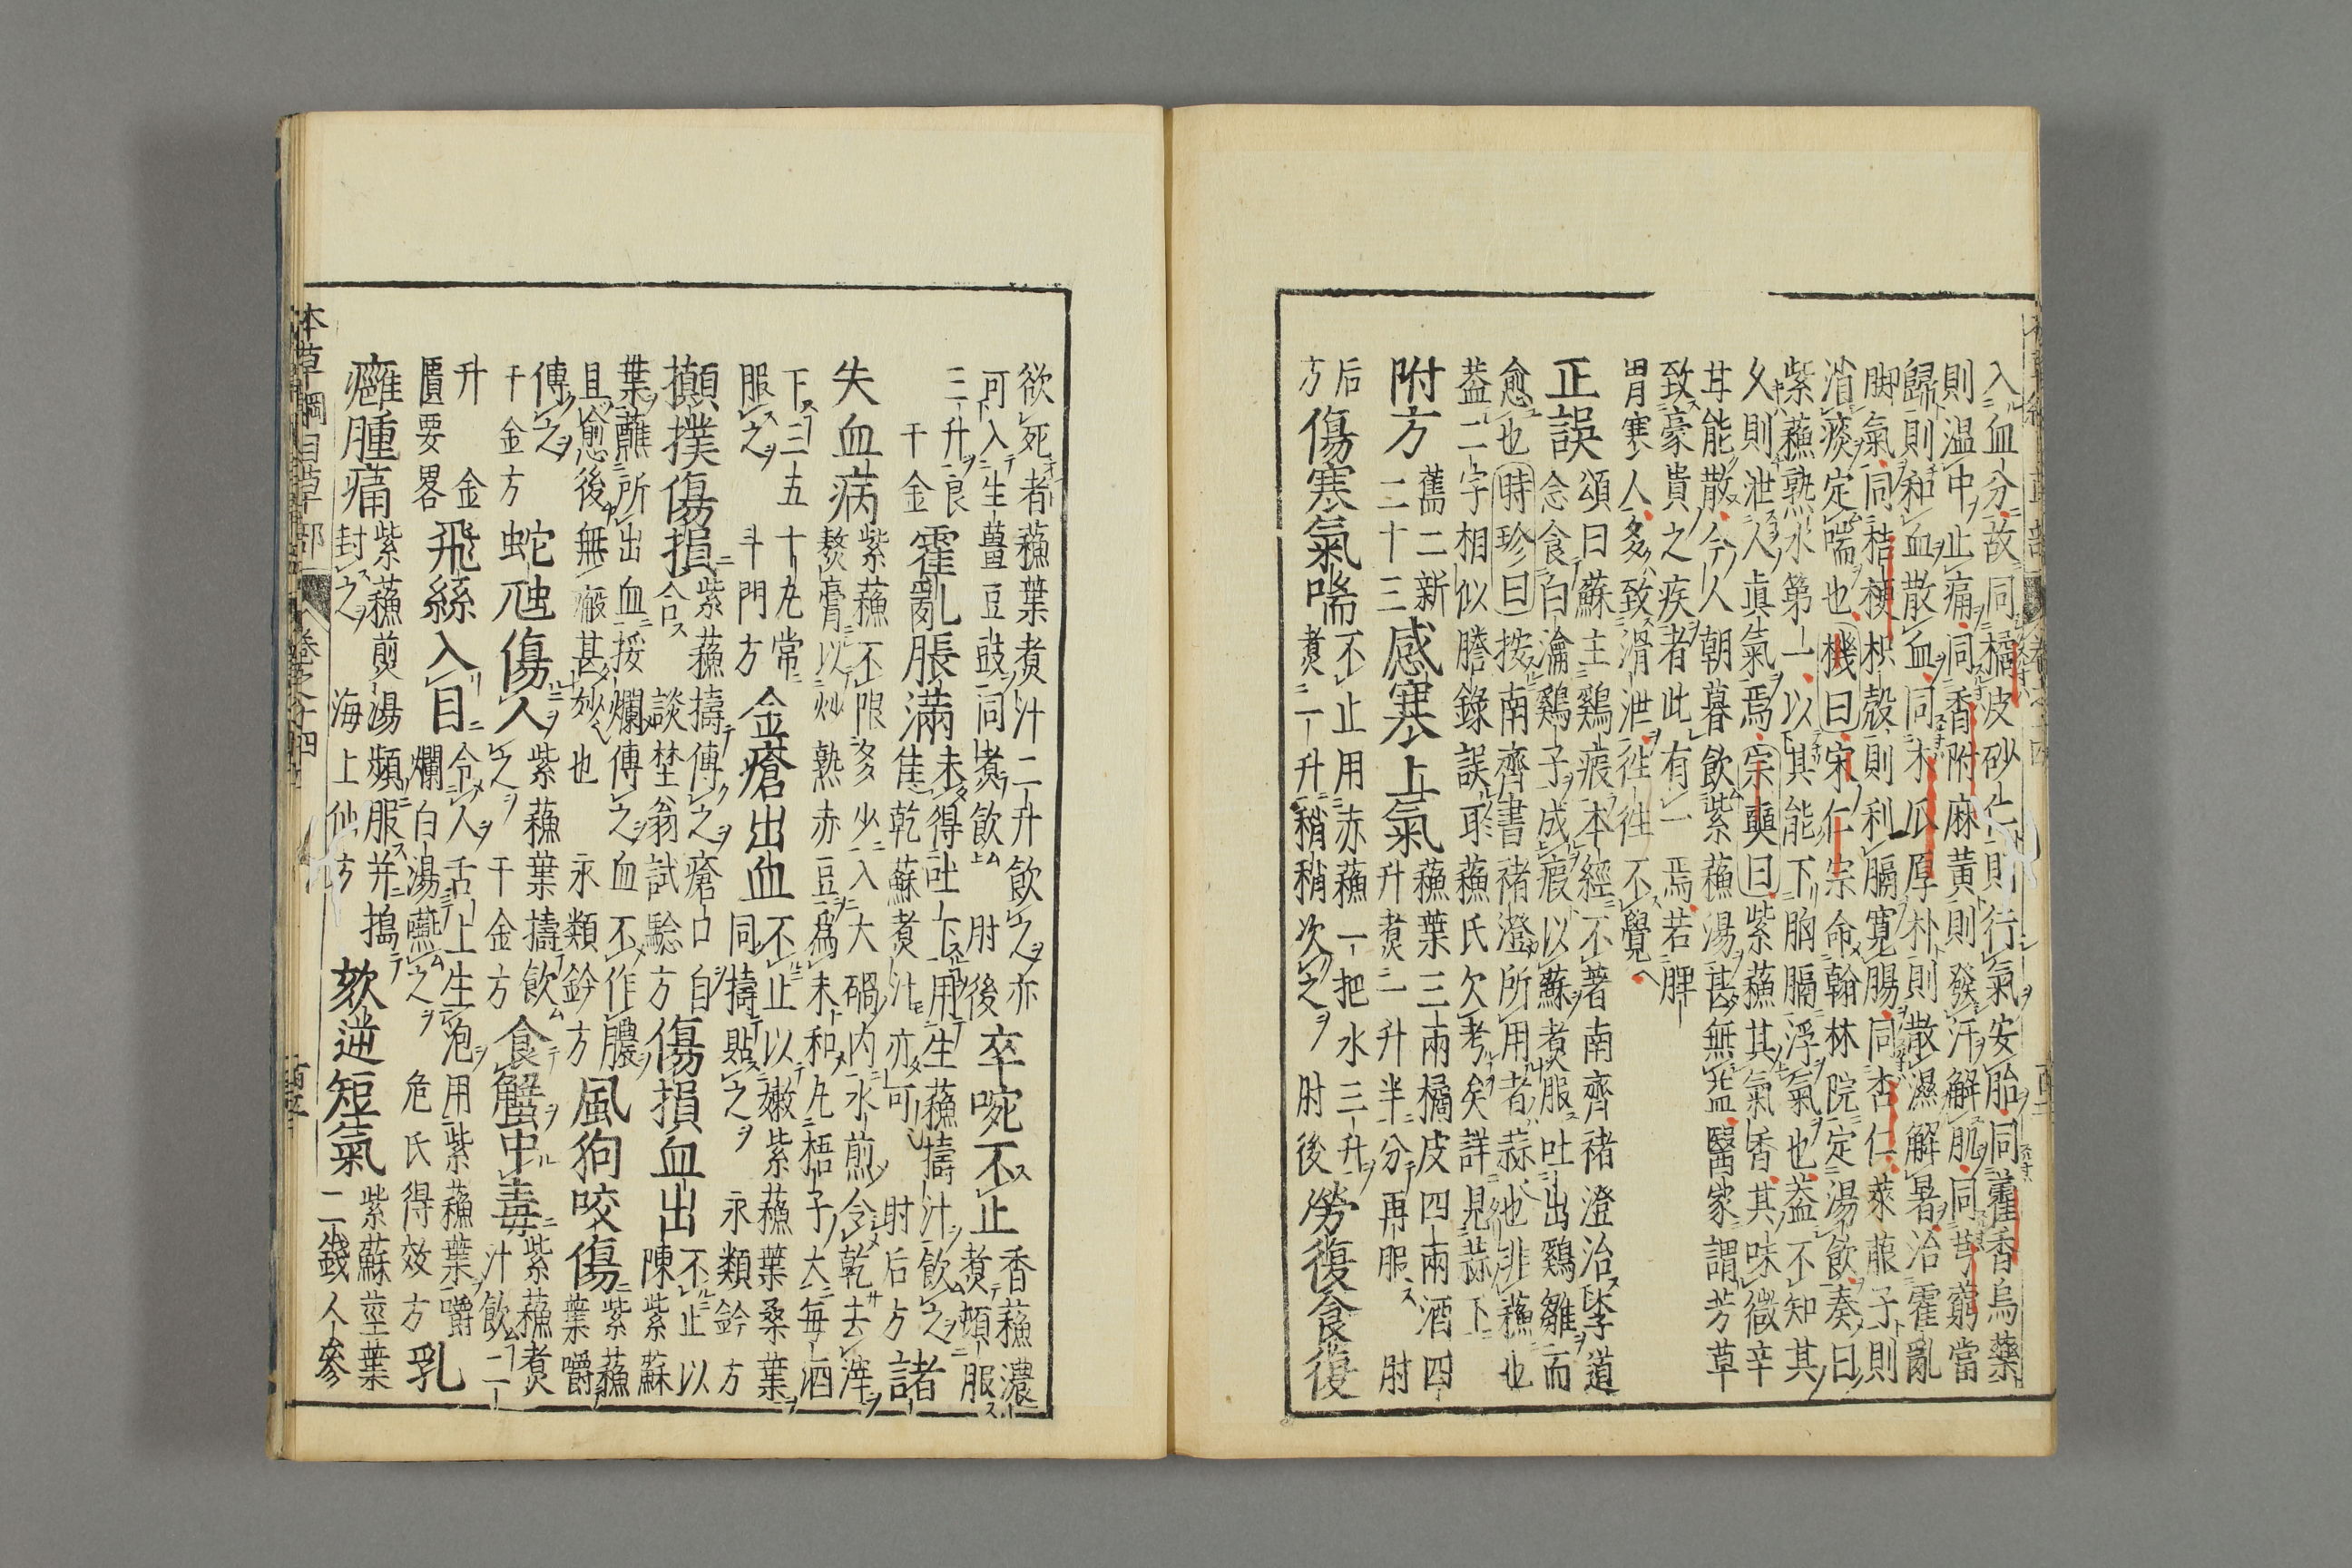 入血分故同橘皮砂仁則行氣安胎同藿香烏藥
則温中止痛同香附麻黃則發汗解肌同芎藭當
歸則和血散血同木瓜厚朴則散濕解暑治霍亂
脚氣同桔梗枳殼則利膈寛腸同杏仁萊菔子則
消痰定喘也機曰宋仁宗命翰林院定湯飲奏曰
紫蘓熟水第一以其能下胸膈浮氣也葢不知其
久則泄人眞氣焉宗奭曰紫蘓其氣香其味微辛
甘能散今人朝暮飲紫蘓湯甚無益醫家謂芳草
致豪貴之疾者此有一焉若脾
胃寒人多致滑泄徃徃不覺
正誤
頌曰蘇主鷄瘕本經不著南齊褚澄治李道
念食白瀹鷄子成瘕以蘇煑服吐出鷄雛而
愈也時珍曰按南齊書褚澄所用者蒜也非蘓也
葢二字相似謄錄誤耳蘓氏欠考矣詳見蒜下
附方
舊二新
二十三
感寒上氣
蘓葉三兩橘皮四兩酒四
升煑一升半分再服肘
后
方
傷寒氣喘
不止用赤蘓一把水三升
煑一升稍稍次之肘後
勞復食復
欲死者蘓葉煑汁二升飲之亦
可入生薑豆豉同煑飲肘後
卒啘不止
香蘓濃
煑頻服
三升良
千金
霍亂脹滿
未得吐下用生蘓擣汁飲之
佳乾蘇煑汁亦可肘后方
諸
失血病
紫蘓不限多少入大碢内水煎令乾去滓
熬膏以炒熟赤豆爲末和丸梧子大毎酒
下三五十丸常
服之斗門方
金瘡出血
不止以嫩紫蘓葉桑葉
同擣貼之永類鈐方
攧撲傷損
紫蘓擣傅之瘡口自
合談埜翁試驗方
傷損血出
不止以
陳紫蘇
葉蘸所出血挼爛傅之血不作膿
且愈後無瘢甚妙也永類鈐方
風狗咬傷
紫蘓
葉嚼
傅之
千金方
蛇虺傷人
紫蘓葉擣飲
之千金方
食蟹中毒
紫蘓煑
汁飲二
升金
匱要畧
飛絲入目
令人舌上生泡用紫蘓葉嚼
爛白湯嚥之危氏得效方
乳
癰腫痛
紫蘓煎湯頻服并搗
封之海上仙方
欬逆短氣
紫蘇莖葉
二錢人參
本草綱目草部
卷之十四